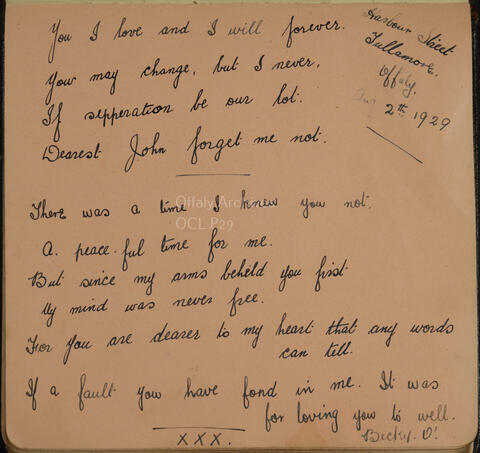 You I love and I will forever.
You may change, but I never,
If sepperation be our lot.
Dearest John forget me not.
Harbour Street
Tullamore.
Offaly.
Aug 2th 1929
There was a time I knew you not.
A peace-ful time for me.
But since my arms beheld you first
My mind was never free.
For you are dearer to my heart that any words
can tell.
If a fault you have fond in me. It was
for loving you to well.
XXX.
Becky. O'
Offaly Archives
OCL P29